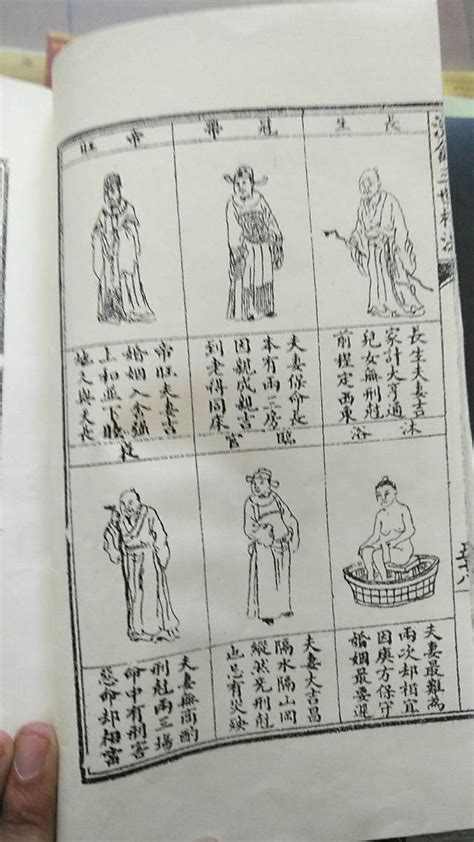 三世相法
長生
長生夫妻吉
家計大亨通
兒女無刑尅
前程定西東
冠帶
夫妻保命長
本有兩三房
因親成親吉
到老得同床
帝旺
帝旺夫妻吉
婚姻入余強
上和並下睦
地久與天長
沐浴
夫妻最難為
兩次却相宜
因庚方保守
婚姻最要遲
臨官
夫妻大吉昌
隔水隔山岡
縱然免刑尅
也忌有火殃
衰
夫妻無商酌
刑尅兩三場
命中有刑害
命却相當